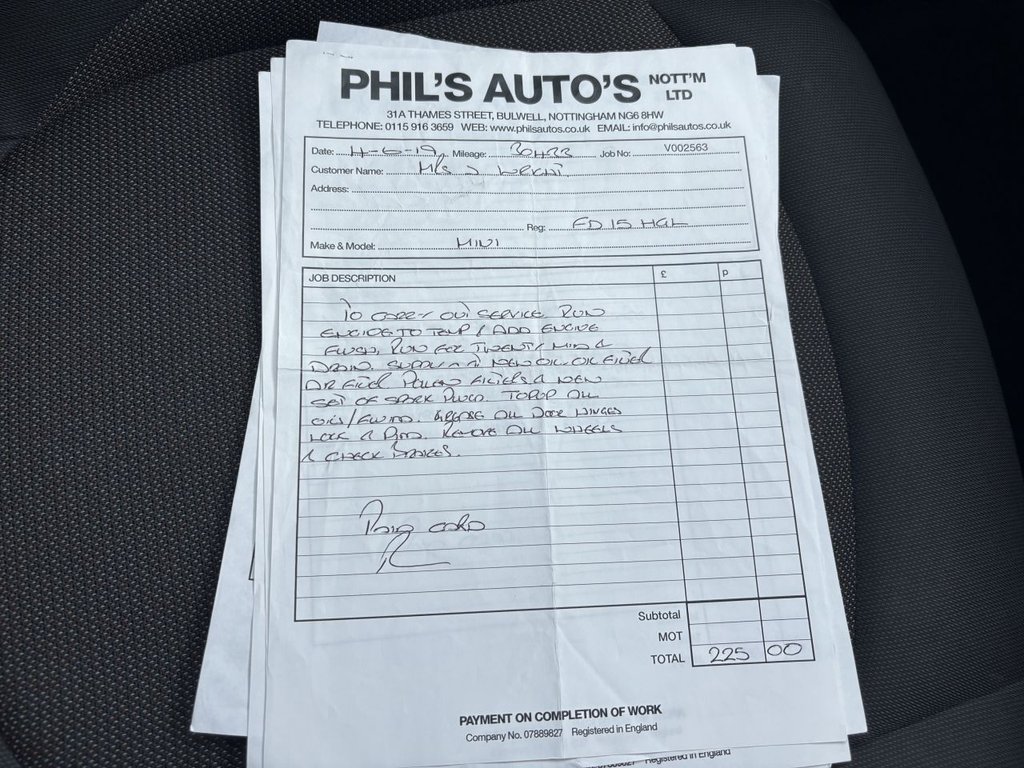 PHIL'S AUTO'S NOTT'M LTD
31A THAMES STREET, BULWELL, NOTTINGHAM NG6 8HW
TELEPHONE: 0115 916 3659 WEB: www.philsautos.co.uk EMAIL: info@philsautos.co.uk
Date: 4-6-19 Mileage: Job No: V002563
Customer Name: MRS J
Address:
Reg: FD 15 HGL
Make & Model: MINI
JOB DESCRIPTION £ P
TO CARRY OUT SERVICE RUN
ENGINE TO TEMP / ADD ENGINE
FLUSH, RUN FOR TWENTY MIN &
DRAIN. SUPPLY & NEW OIL. OIL FILTER
AIR FILTER POLLEN FILTERS & NEW
SET OF SPARK PLUGS. TOP UP ALL
OILS/FLUIDS. GREASE ALL DOOR HINGES
LOCK & PINS. REMOVE ALL WHEELS
& CHECK BRAKES.
PAID CARD
Subtotal
MOT
TOTAL 225 00
PAYMENT ON COMPLETION OF WORK
Company No. 07889827 Registered in England
Registered in England